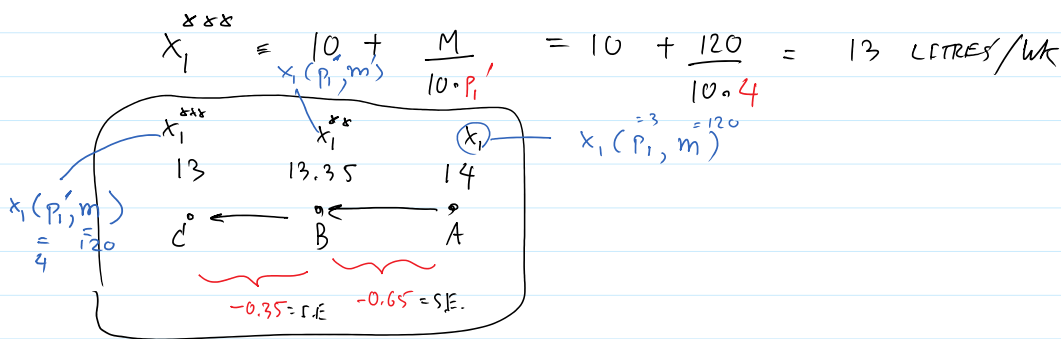 x₁*** = 10 + M / 10·p₁' = 10 + 120 / 10·4 = 13 LITRES/WK
x₁(p₁', m)
x₁*** x₁** x₁ x₁(p₁, m) =3 =120
13 13.35 14
x₁(p₁', m)
= 4 = 120
C B A
-0.35 = I.E -0.65 = S.E.